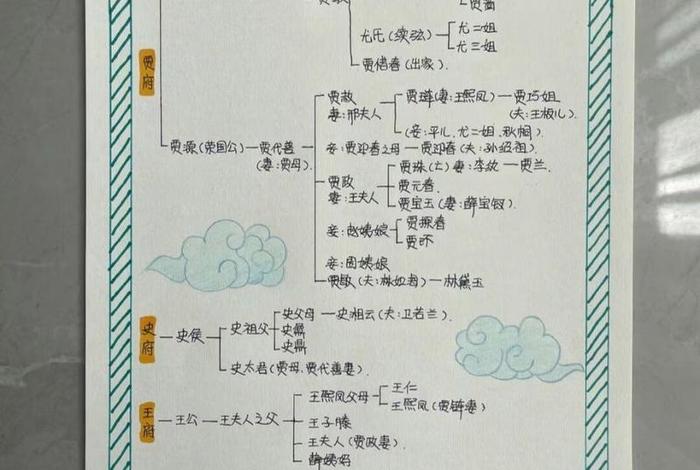 贾蔷
尤氏(续弦) 尤二姐
尤三姐
贾惜春(出家).
贾府
贾源(荣国公) 贾代善
(妻:贾母).
贾赦
妻:邢夫人
贾琏(妻:王熙凤) 贾巧姐
(夫:王板儿).
(妾:平儿、尤二姐、秋桐).
妾:贾迎春之母 贾迎春(夫:孙绍祖).
贾政
妻:王夫人
贾珠(亡)妻:李纨 贾兰.
贾元春.
贾宝玉(妻:薛宝钗).
妾:赵姨娘 贾探春
贾环
妾:周姨娘
贾敏(夫:林如海) 林黛玉
史府 史侯 史祖父 史父母 史湘云(夫:卫若兰).
史鼐
史鼎
史太君(贾母,贾代善妻).
王府 王公 王夫人之父 王熙凤父母 王仁
王熙凤(贾琏妻)
王子腾
王夫人(贾政妻).
薛姨妈